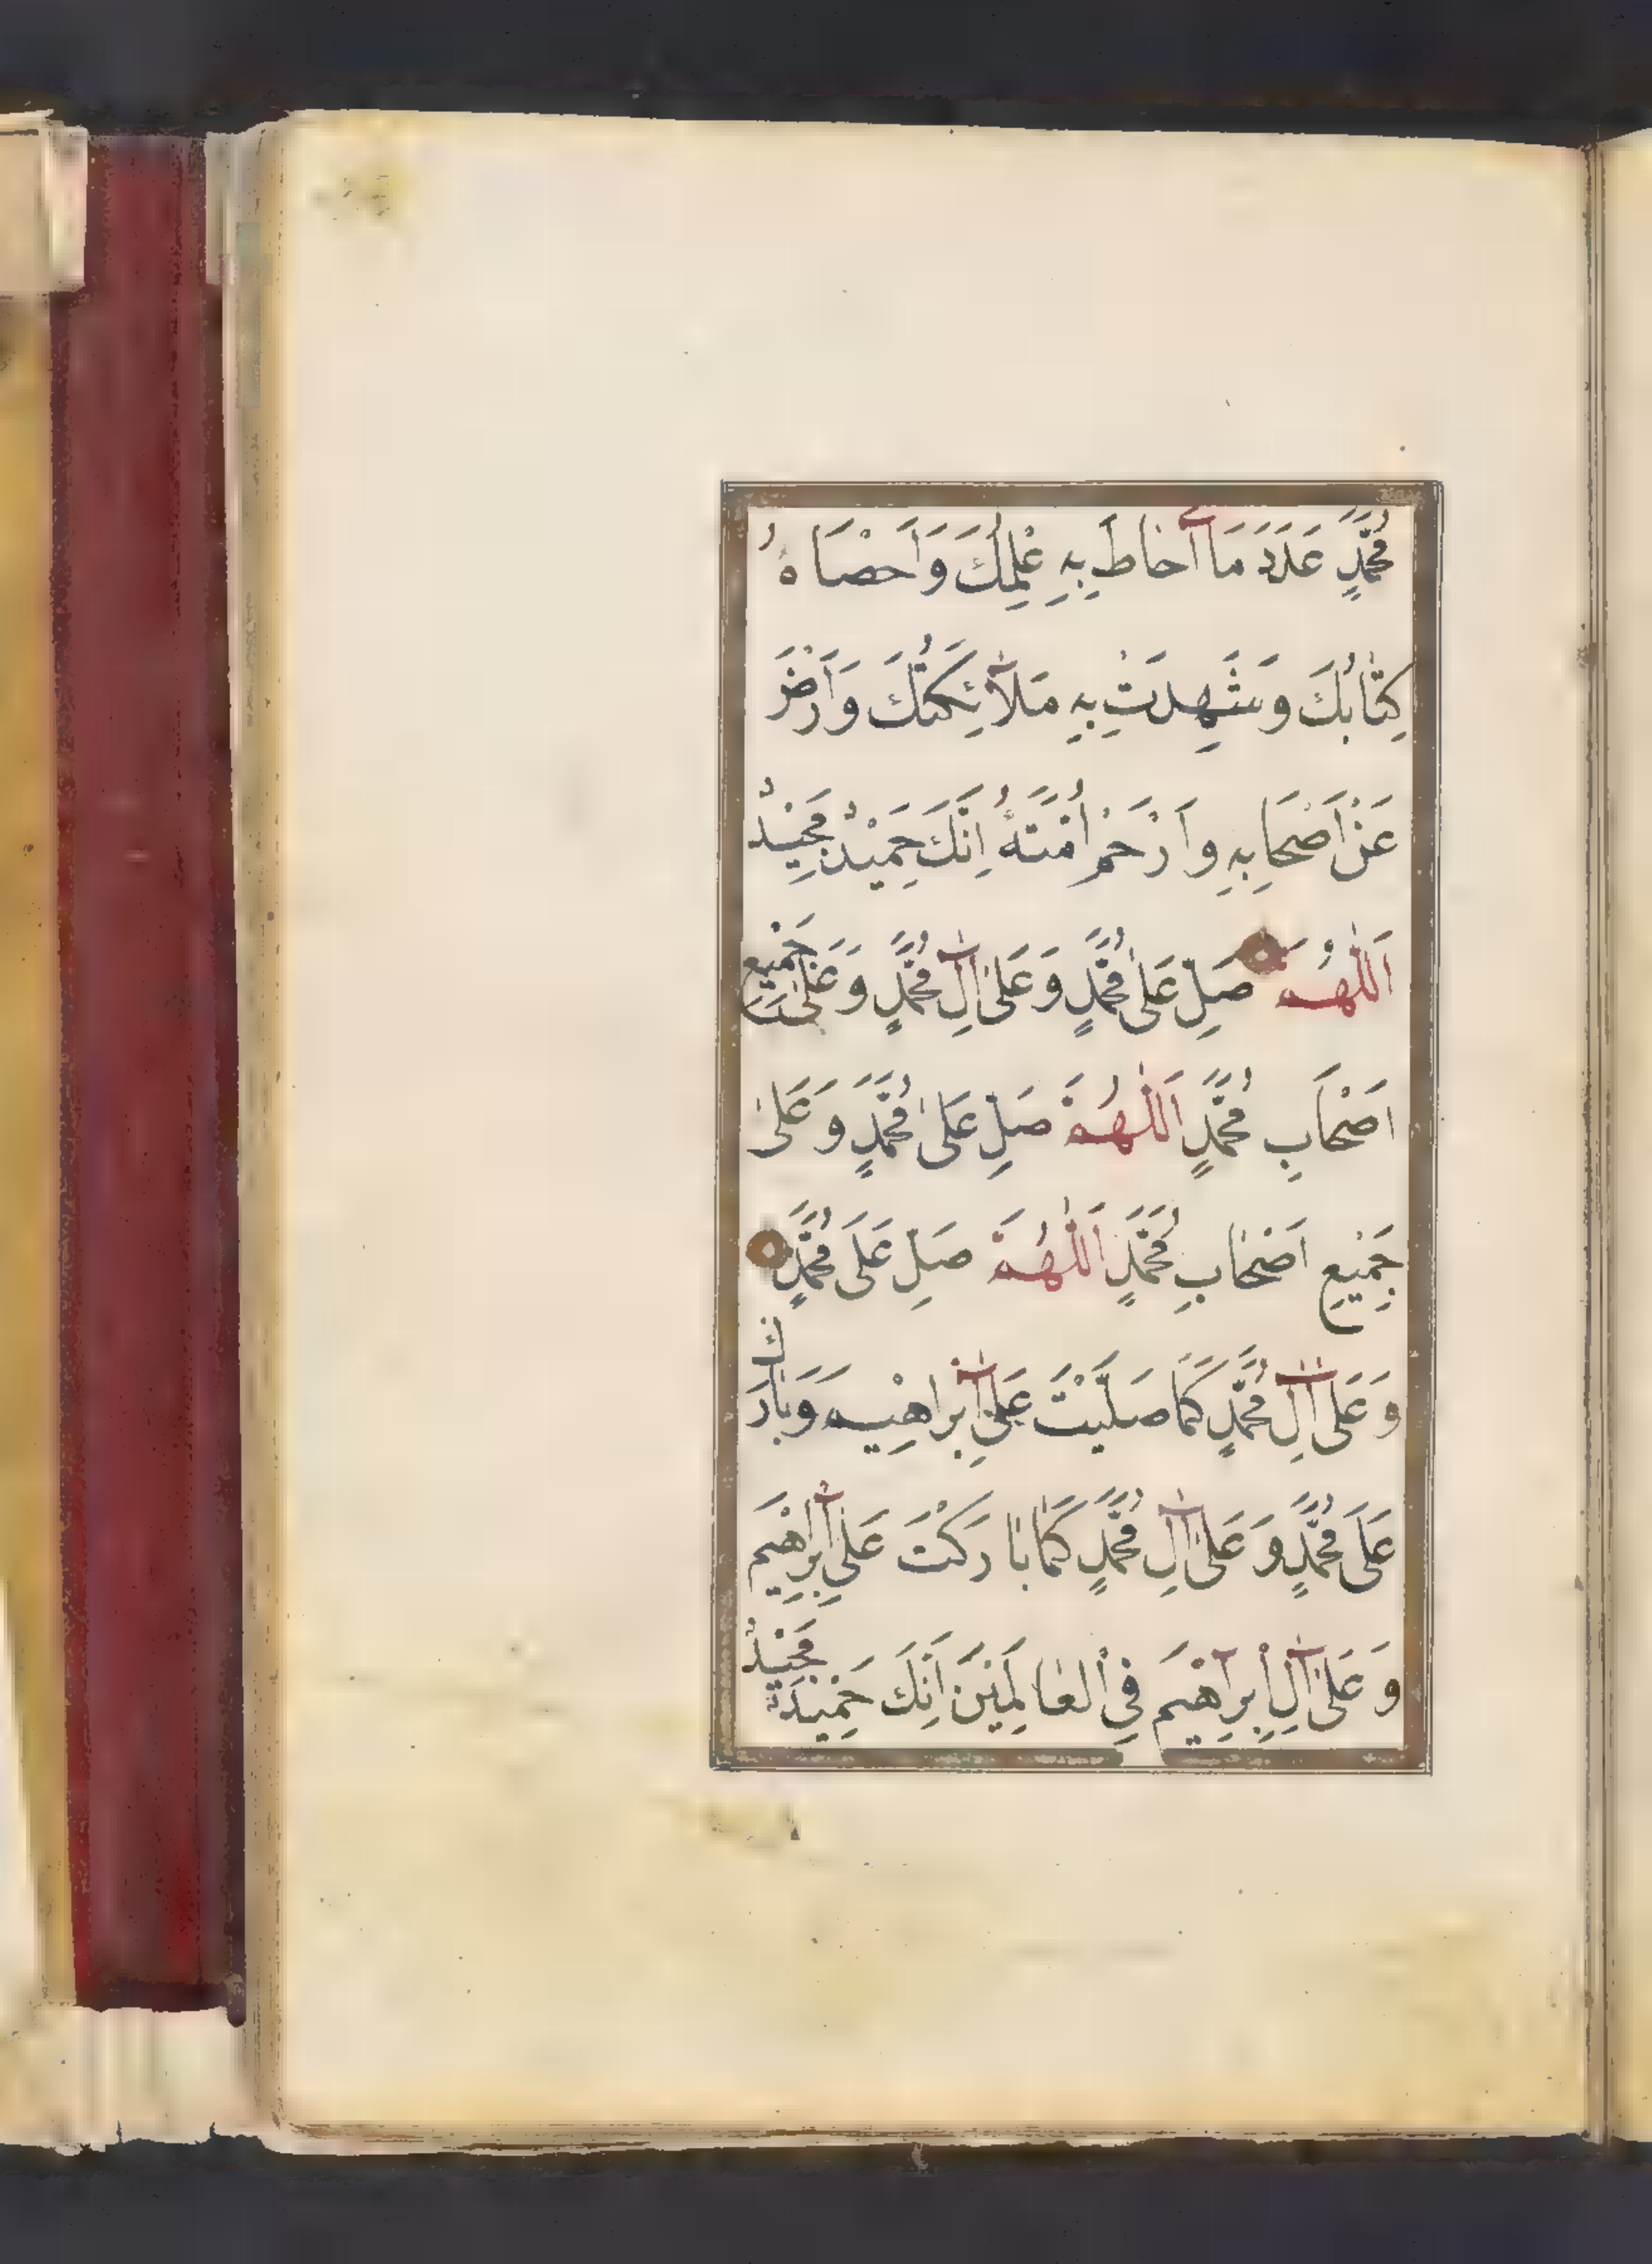 مُحَمَّدٍ عَدَدَ مَا اَحَاطَ بِهِ عِلْمُكَ وَاَحْصَاهُ
كِتَابُكَ وَشَهِدَتْ بِهِ مَلَآئِكَتُكَ وَاَرْضَ
عَنْ اَصْحَابِهِ وَاَرْحَمْ اُمَّتَهُ اِنَّكَ حَمِيْدٌ مَجِيْدٌ
اَللّٰهُمَّ صَلِّ عَلٰى مُحَمَّدٍ وَعَلٰى اٰلِ مُحَمَّدٍ وَعَلٰى جَمِيْعِ
اَصْحَابِ مُحَمَّدٍ اَللّٰهُمَّ صَلِّ عَلٰى مُحَمَّدٍ وَعَلٰى
جَمِيْعِ اَصْحَابِ مُحَمَّدٍ اَللّٰهُمَّ صَلِّ عَلَى مُحَمَّدٍ
وَعَلٰى اٰلِ مُحَمَّدٍ كَمَا صَلَّيْتَ عَلٰى اِبْرَاهِيْمَ وَبَارَكْ
عَلَى مُحَمَّدٍ وَعَلٰى اٰلِ مُحَمَّدٍ كَمَا بَارَكْتَ عَلٰى اِبْرٰهِيْمَ
وَعَلٰى اٰلِ اِبْرٰاهِيْمَ فِي الْعَالَمِيْنَ اِنَّكَ حَمِيْدٌ مَجِيْدٌ